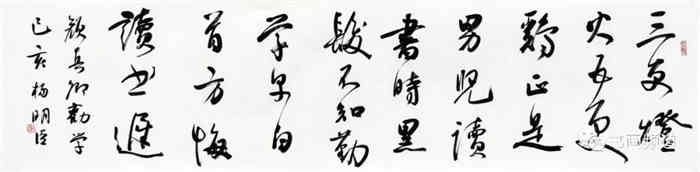 三更燈
火五更
鷄正是
男児讀
書時黑
髮不知勤
学早白
首方悔
讀书遲
顔真卿勸学
己亥楊明臣